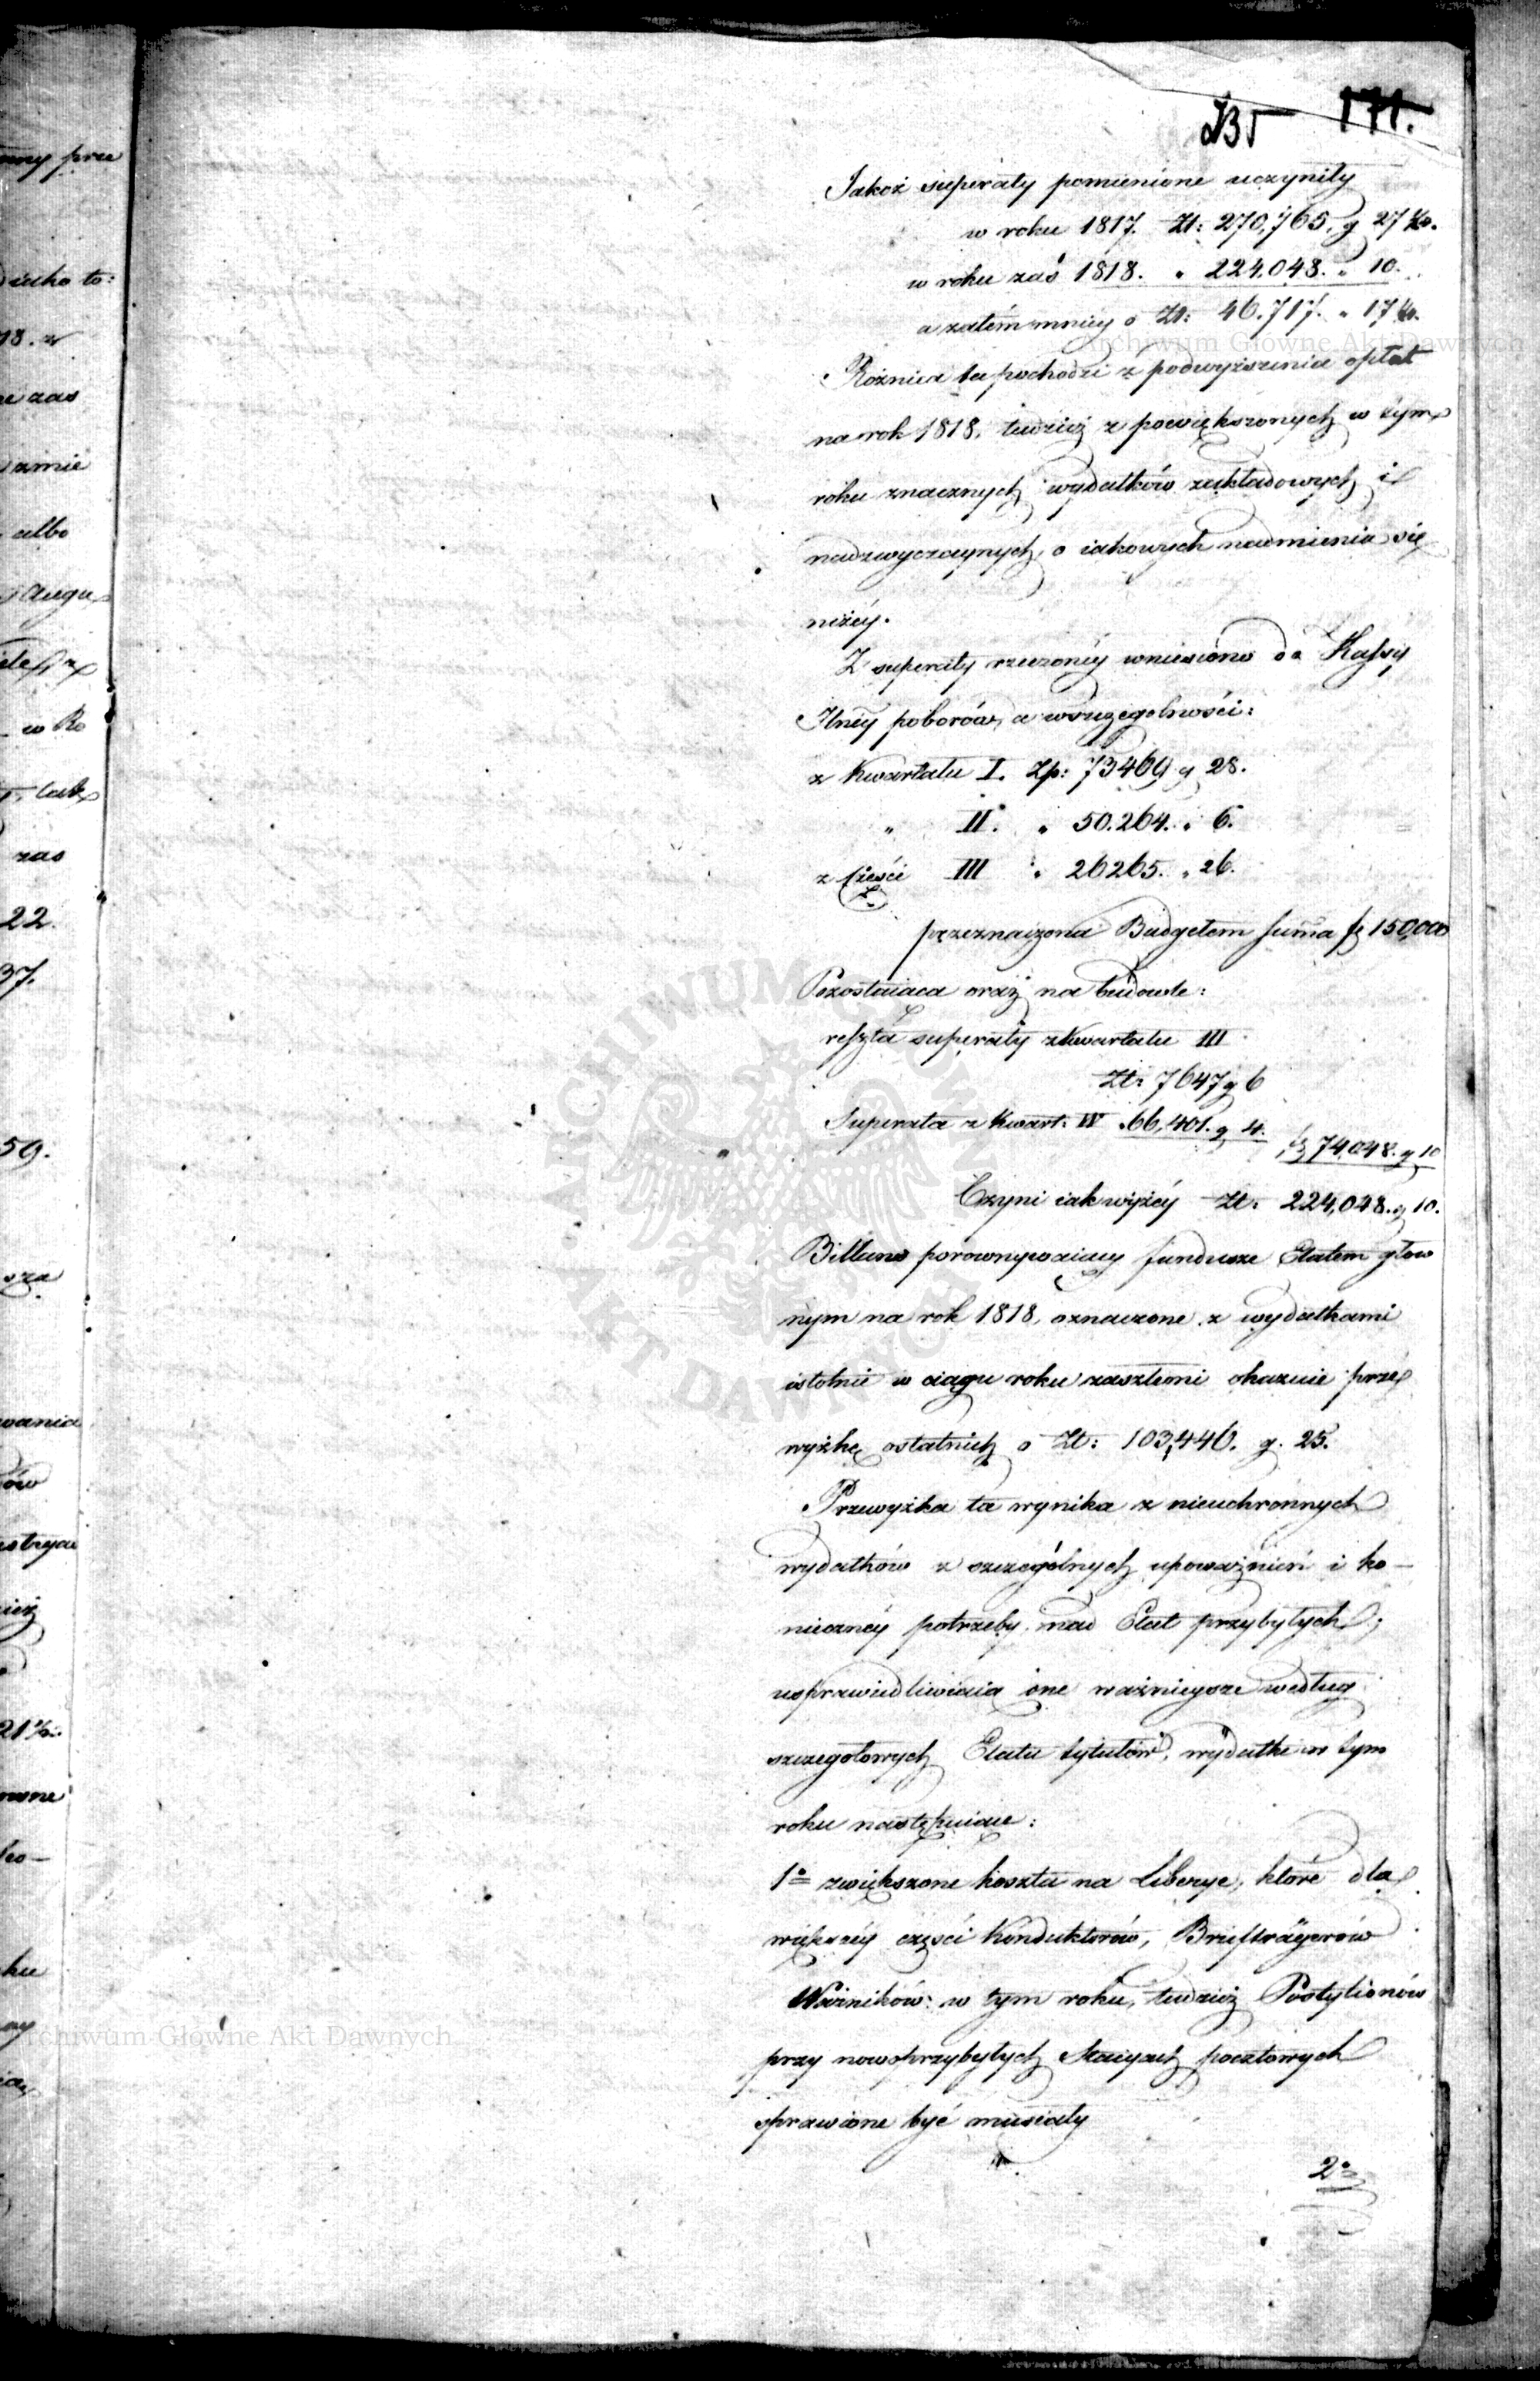 171.
Jakoż superaty pomienione uczyniły
w roku 1817. Zł: 270,765. g 27
w roku zaś 1818. " 224.048. " 10.
a zatém mniey o Zł: 46.717. " 17
Rożnica ta pochodzi z podwyższenia opłat
na rok 1818, tudzież z powiększonych w tym
roku znacznych wydatków zakładowych i
nadzwyczaynych, o iakowych nadmienia się
niżéy.
Z superaty rzeczonéy wniesiono do Kassy
Jlnéy poborów, a wszczegolności:
z Kwartału I. Zp: 73469 g 28.
" II. " 50.264. " 6.
z części III " 26265. " 26.
przeznaczona Budgetem summa 150,000
Pozostaiąca oraz na budowle:
reszta superaty z Kwartału III
Zł: 7647 g 6
Superata z Kwart: IV " 66,401. g 4. 74,048. g 10
Czyni iak wyżéy Zł: 224,048. g 10.
Billans porownywaiący fundusze Etatem głow
nym na rok 1818, oznaczone z wydatkami
istotnie w ciągu roku zaszłemi okazuie prze
wyżkę ostatnich o Zł: 103,446. g. 25.
Przewyżka ta wynika z nieuchronnych
wydatków z szczególnych upoważnień i ko-
nieczney potrzeby nad Etat przybyłych;
usprawiedliwiaią one ważnieysze według
szczegołowych Etatu tytułów, wydatki w tym
roku następuiące:
1o zwiększone koszta na Liberye, które dla
większéy części Konduktorów, Briefträgerów
Woźników: w tym roku, tudzież Postylionów
przy nowoprzybyłych Stacyach pocztowych
sprawione być musiały
2o
Archiwum Główne Akt Dawnych
Archiwum Główne Akt Dawnych
ARCHIWUM GŁÓWNE AKT DAWNYCH